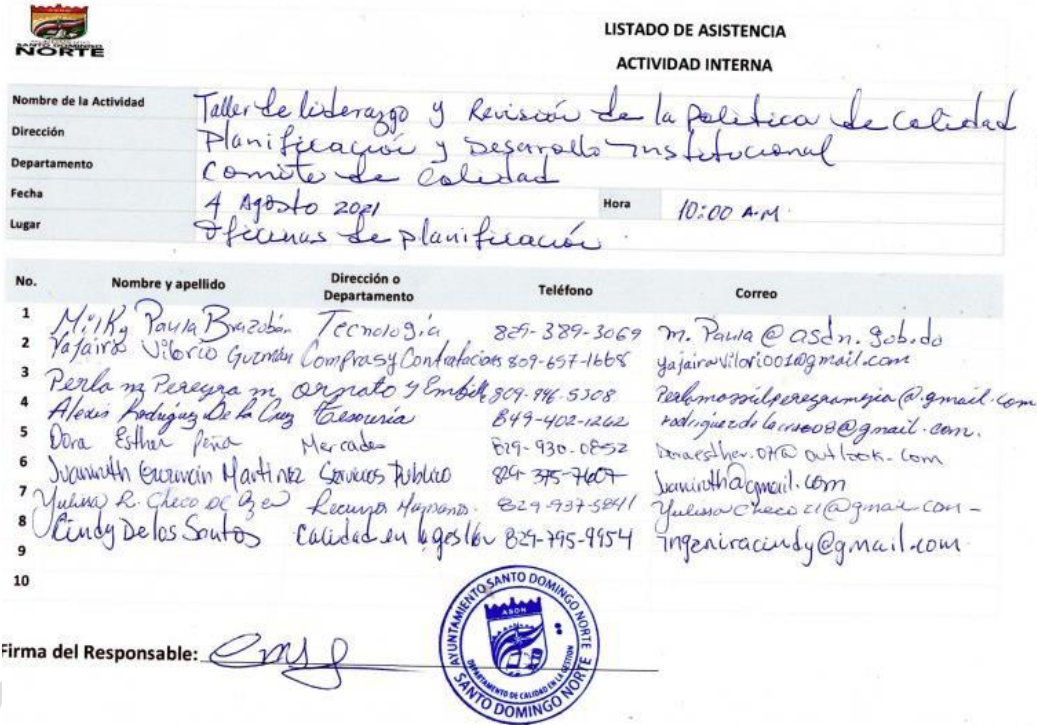 SANTO DOMINGO
NORTE
LISTADO DE ASISTENCIA
ACTIVIDAD INTERNA
Nombre de la Actividad Taller de liderazgo y Revisión de la politica de calidad
Dirección Planificación y Desarrollo institucional
Departamento Comite de Calidad
Fecha 4 Agosto 2021 Hora 10:00 A.M.
Lugar Oficinas de planificación.
No. Nombre y apellido Dirección o Departamento Teléfono Correo
1 Milky Paula Brazobán Tecnología 829-389-3069 m.Paula@asdn.gob.do
2 Yajaira Vilorio Guzmán Compras y Contrataciones 809-657-1668 yajairavilorio01@gmail.com
3 Perla m Pereyra m ornato y 809-996-5308
4 Alexis Rodriguez De la Cruz Tesoreria 849-402-1262
5 Dora Esther Peña Mercados 829-930-0852
6 Martinez Servicios Publico
7 Yulissa R. Checo Recursos Humanos. 829-937-5841
8 Cindy De los Santos Calidad en la gestión 829-795-9954 ingeniracindy@gmail.com
9
10
Firma del Responsable:
AYUNTAMIENTO SANTO DOMINGO NORTE
ASDN
DEPARTAMENTO DE CALIDAD EN LA GESTION
SANTO DOMINGO NORTE